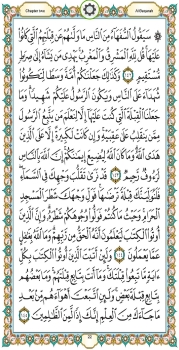 Chapter two Al Baqarah
سَيَقُولُ ٱلسُّفَهَآءُ مِنَ ٱلنَّاسِ مَا وَلَّىٰهُمْ عَن قِبْلَتِهِمُ ٱلَّتِى كَانُوا۟
عَلَيْهَا قُل لِّلَّهِ ٱلْمَشْرِقُ وَٱلْمَغْرِبُ يَهْدِى مَن يَشَآءُ إِلَىٰ صِرَٰطٍ
مُّسْتَقِيمٍ ١٤٢ وَكَذَٰلِكَ جَعَلْنَٰكُمْ أُمَّةً وَسَطًا لِّتَكُونُوا۟
شُهَدَآءَ عَلَى ٱلنَّاسِ وَيَكُونَ ٱلرَّسُولُ عَلَيْكُمْ شَهِيدًا وَمَا
جَعَلْنَا ٱلْقِبْلَةَ ٱلَّتِى كُنتَ عَلَيْهَآ إِلَّا لِنَعْلَمَ مَن يَتَّبِعُ ٱلرَّسُولَ
مِمَّن يَنقَلِبُ عَلَىٰ عَقِبَيْهِ وَإِن كَانَتْ لَكَبِيرَةً إِلَّا عَلَى ٱلَّذِينَ
هَدَى ٱللَّهُ وَمَا كَانَ ٱللَّهُ لِيُضِيعَ إِيمَٰنَكُمْ إِنَّ ٱللَّهَ بِٱلنَّاسِ
لَرَءُوفٌ رَّحِيمٌ ١٤٣ قَدْ نَرَىٰ تَقَلُّبَ وَجْهِكَ فِى ٱلسَّمَآءِ
فَلَنُوَلِّيَنَّكَ قِبْلَةً تَرْضَىٰهَا فَوَلِّ وَجْهَكَ شَطْرَ ٱلْمَسْجِدِ
ٱلْحَرَامِ وَحَيْثُ مَا كُنتُمْ فَوَلُّوا۟ وُجُوهَكُمْ شَطْرَهُۥ وَإِنَّ ٱلَّذِينَ
أُوتُوا۟ ٱلْكِتَٰبَ لَيَعْلَمُونَ أَنَّهُ ٱلْحَقُّ مِن رَّبِّهِمْ وَمَا ٱللَّهُ بِغَٰفِلٍ
عَمَّا يَعْمَلُونَ ١٤٤ وَلَئِنْ أَتَيْتَ ٱلَّذِينَ أُوتُوا۟ ٱلْكِتَٰبَ بِكُلِّ
ءَايَةٍ مَّا تَبِعُوا۟ قِبْلَتَكَ وَمَآ أَنتَ بِتَابِعٍ قِبْلَتَهُمْ وَمَا بَعْضُهُم
بِتَابِعٍ قِبْلَةَ بَعْضٍ وَلَئِنِ ٱتَّبَعْتَ أَهْوَآءَهُم مِّنۢ بَعْدِ مَا
جَآءَكَ مِنَ ٱلْعِلْمِ إِنَّكَ إِذًا لَّمِنَ ٱلظَّٰلِمِينَ ١٤٥